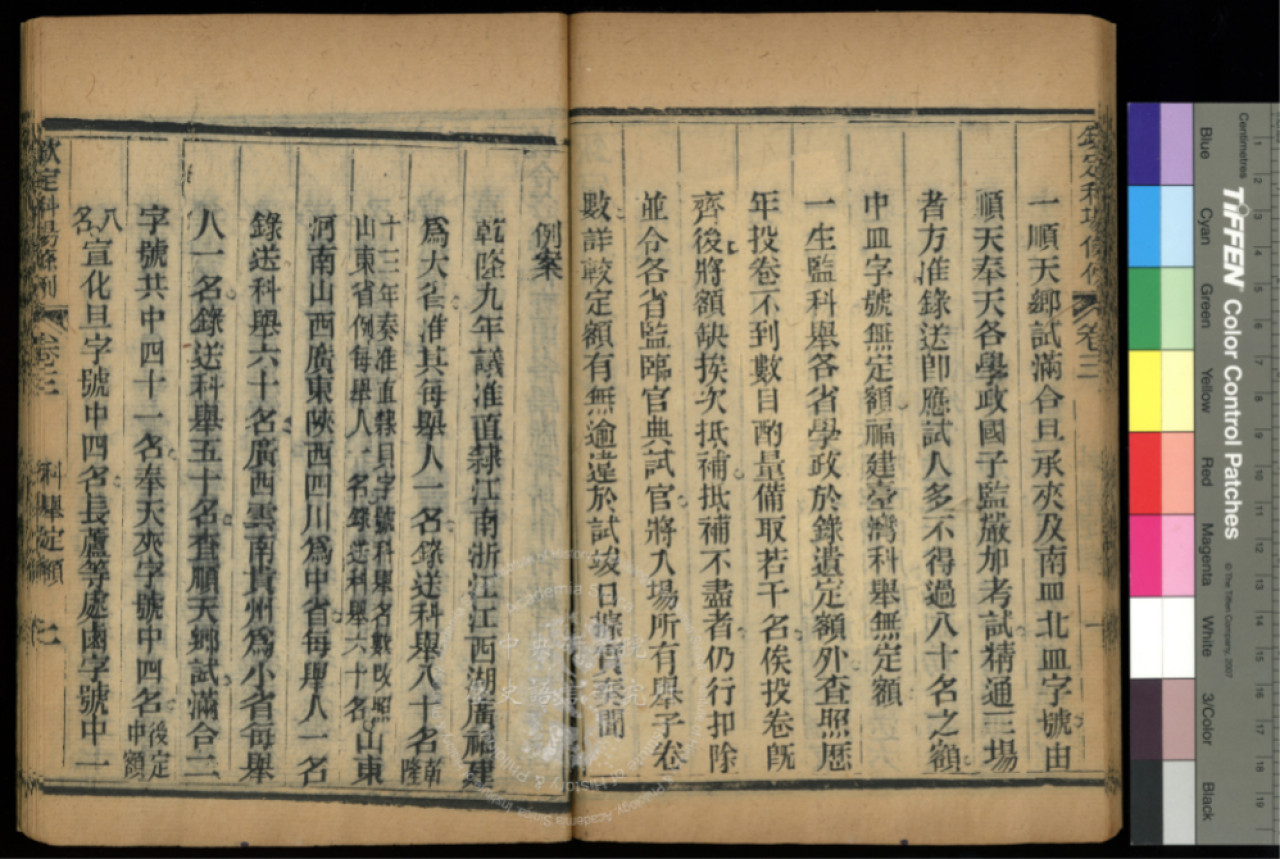 欽定科場條例 卷三
一順天鄉試滿合旦承夾及南皿北皿字號由
順天奉天各學政國子監嚴加考試精通三場
者方准錄送卽應試人多不得過八十名之額
中皿字號無定額福建臺灣科舉無定額
一生監科舉各省學政於錄遺定額外查照歷
年投卷不到數目酌量備取若干名俟投卷旣
齊後將額缺挨次抵補抵補不盡者仍行扣除
並令各省監臨官典試官將入場所有舉子卷
數詳較定額有無逾違於試竣日據實奏聞
例案
乾隆九年議准直隸江南浙江江西湖廣福建
爲大省准其每舉人一名錄送科舉八十名乾隆
十三年奏准直隸貝字號科舉名數改照山東省例每舉人一名錄送科舉六十名山東
河南山西廣東陝西四川爲中省每舉人一名
錄送科舉六十名廣西雲南貴州爲小省每舉
人一名錄送科舉五十名查順天鄉試滿合二
字號共中四十一名奉天夾字號中四名後定中額
八名宣化旦字號中四名長蘆等處鹵字號中一
欽定科場條例 卷三 科舉定額 七
Centimetres
TIFFEN Color Control Patches
© The Tiffen Company, 2007
Blue
Cyan
Green
Yellow
Red
Magenta
White
3/Color
Black